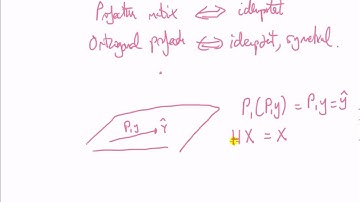 Projection matrix ⟺ idempotent
Orthogonal projection ⟺ idempotent, symmetrical.
P₁(P₁y) = P₁y = ŷ
P₁y ŷ
HX = X